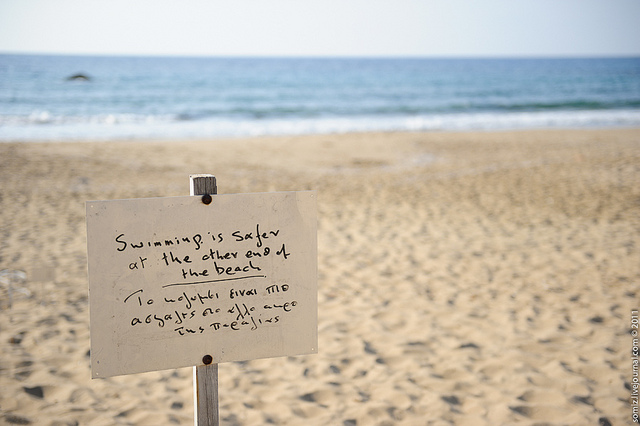 Swimming is safer
at the other end of
the beach
Το κολυμπι ειναι πιο
ασφαλες στο αλλο ακρο
της παραλιας
somiz.livejournal.com © 2011